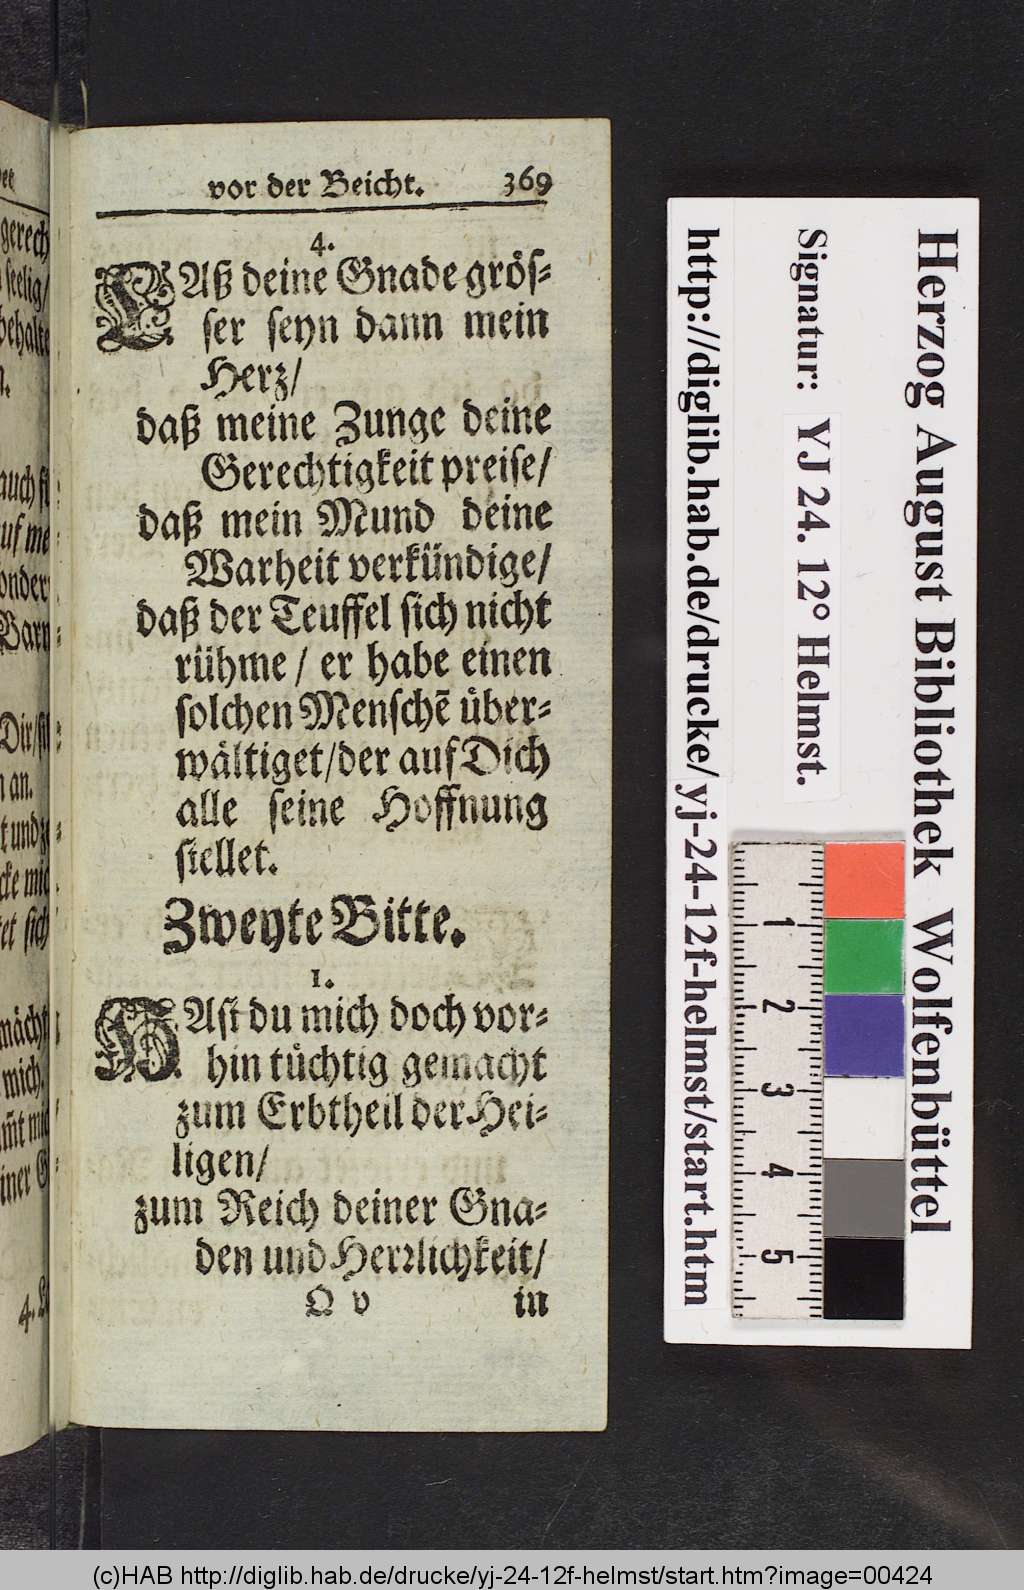 vor der Beicht. 369
4.
LAß deine Gnade grös-
ser seyn dann mein
Herz/
daß meine Zunge deine
Gerechtigkeit preise/
daß mein Mund deine
Warheit verkündige/
daß der Teuffel sich nicht
rühme / er habe einen
solchen Menschē über-
wältiget/der auf Dich
alle seine Hoffnung
stellet.
Zweyte Bitte.
1.
HAst du mich doch vor-
hin tüchtig gemacht
zum Erbtheil der Hei-
ligen/
zum Reich deiner Gna-
den und Herrlichkeit/
Q v in
gerech
seelig/
behalte
auch si
uf me
onder
Warn-
Dir/
n an.
t und
cke mic
et sich
mächt
mich.
iner G
4. L
Herzog August Bibliothek Wolfenbüttel
Signatur: YJ 24. 12° Helmst.
http://diglib.hab.de/drucke/yj-24-12f-helmst/start.htm
1
2
3
4
5
(c)HAB http://diglib.hab.de/drucke/yj-24-12f-helmst/start.htm?image=00424